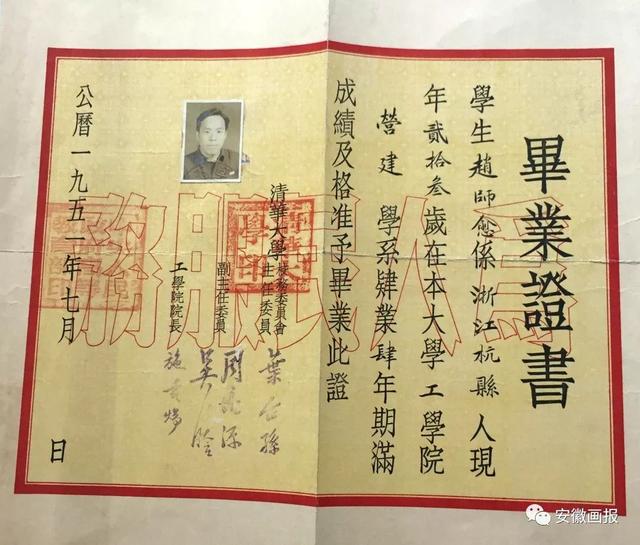 畢業證書
學生趙師愈係浙江杭縣人現
年貳拾叁歲在本大學工學院
營建學系肄業肆年期滿
成績及格准予畢業此證
清華大學校務委員會
主任委員
葉企孫
副主任委員
周培源
吳晗
工學院院長
施嘉煬
公曆一九五一年七月日
為人民服務
安徽画报